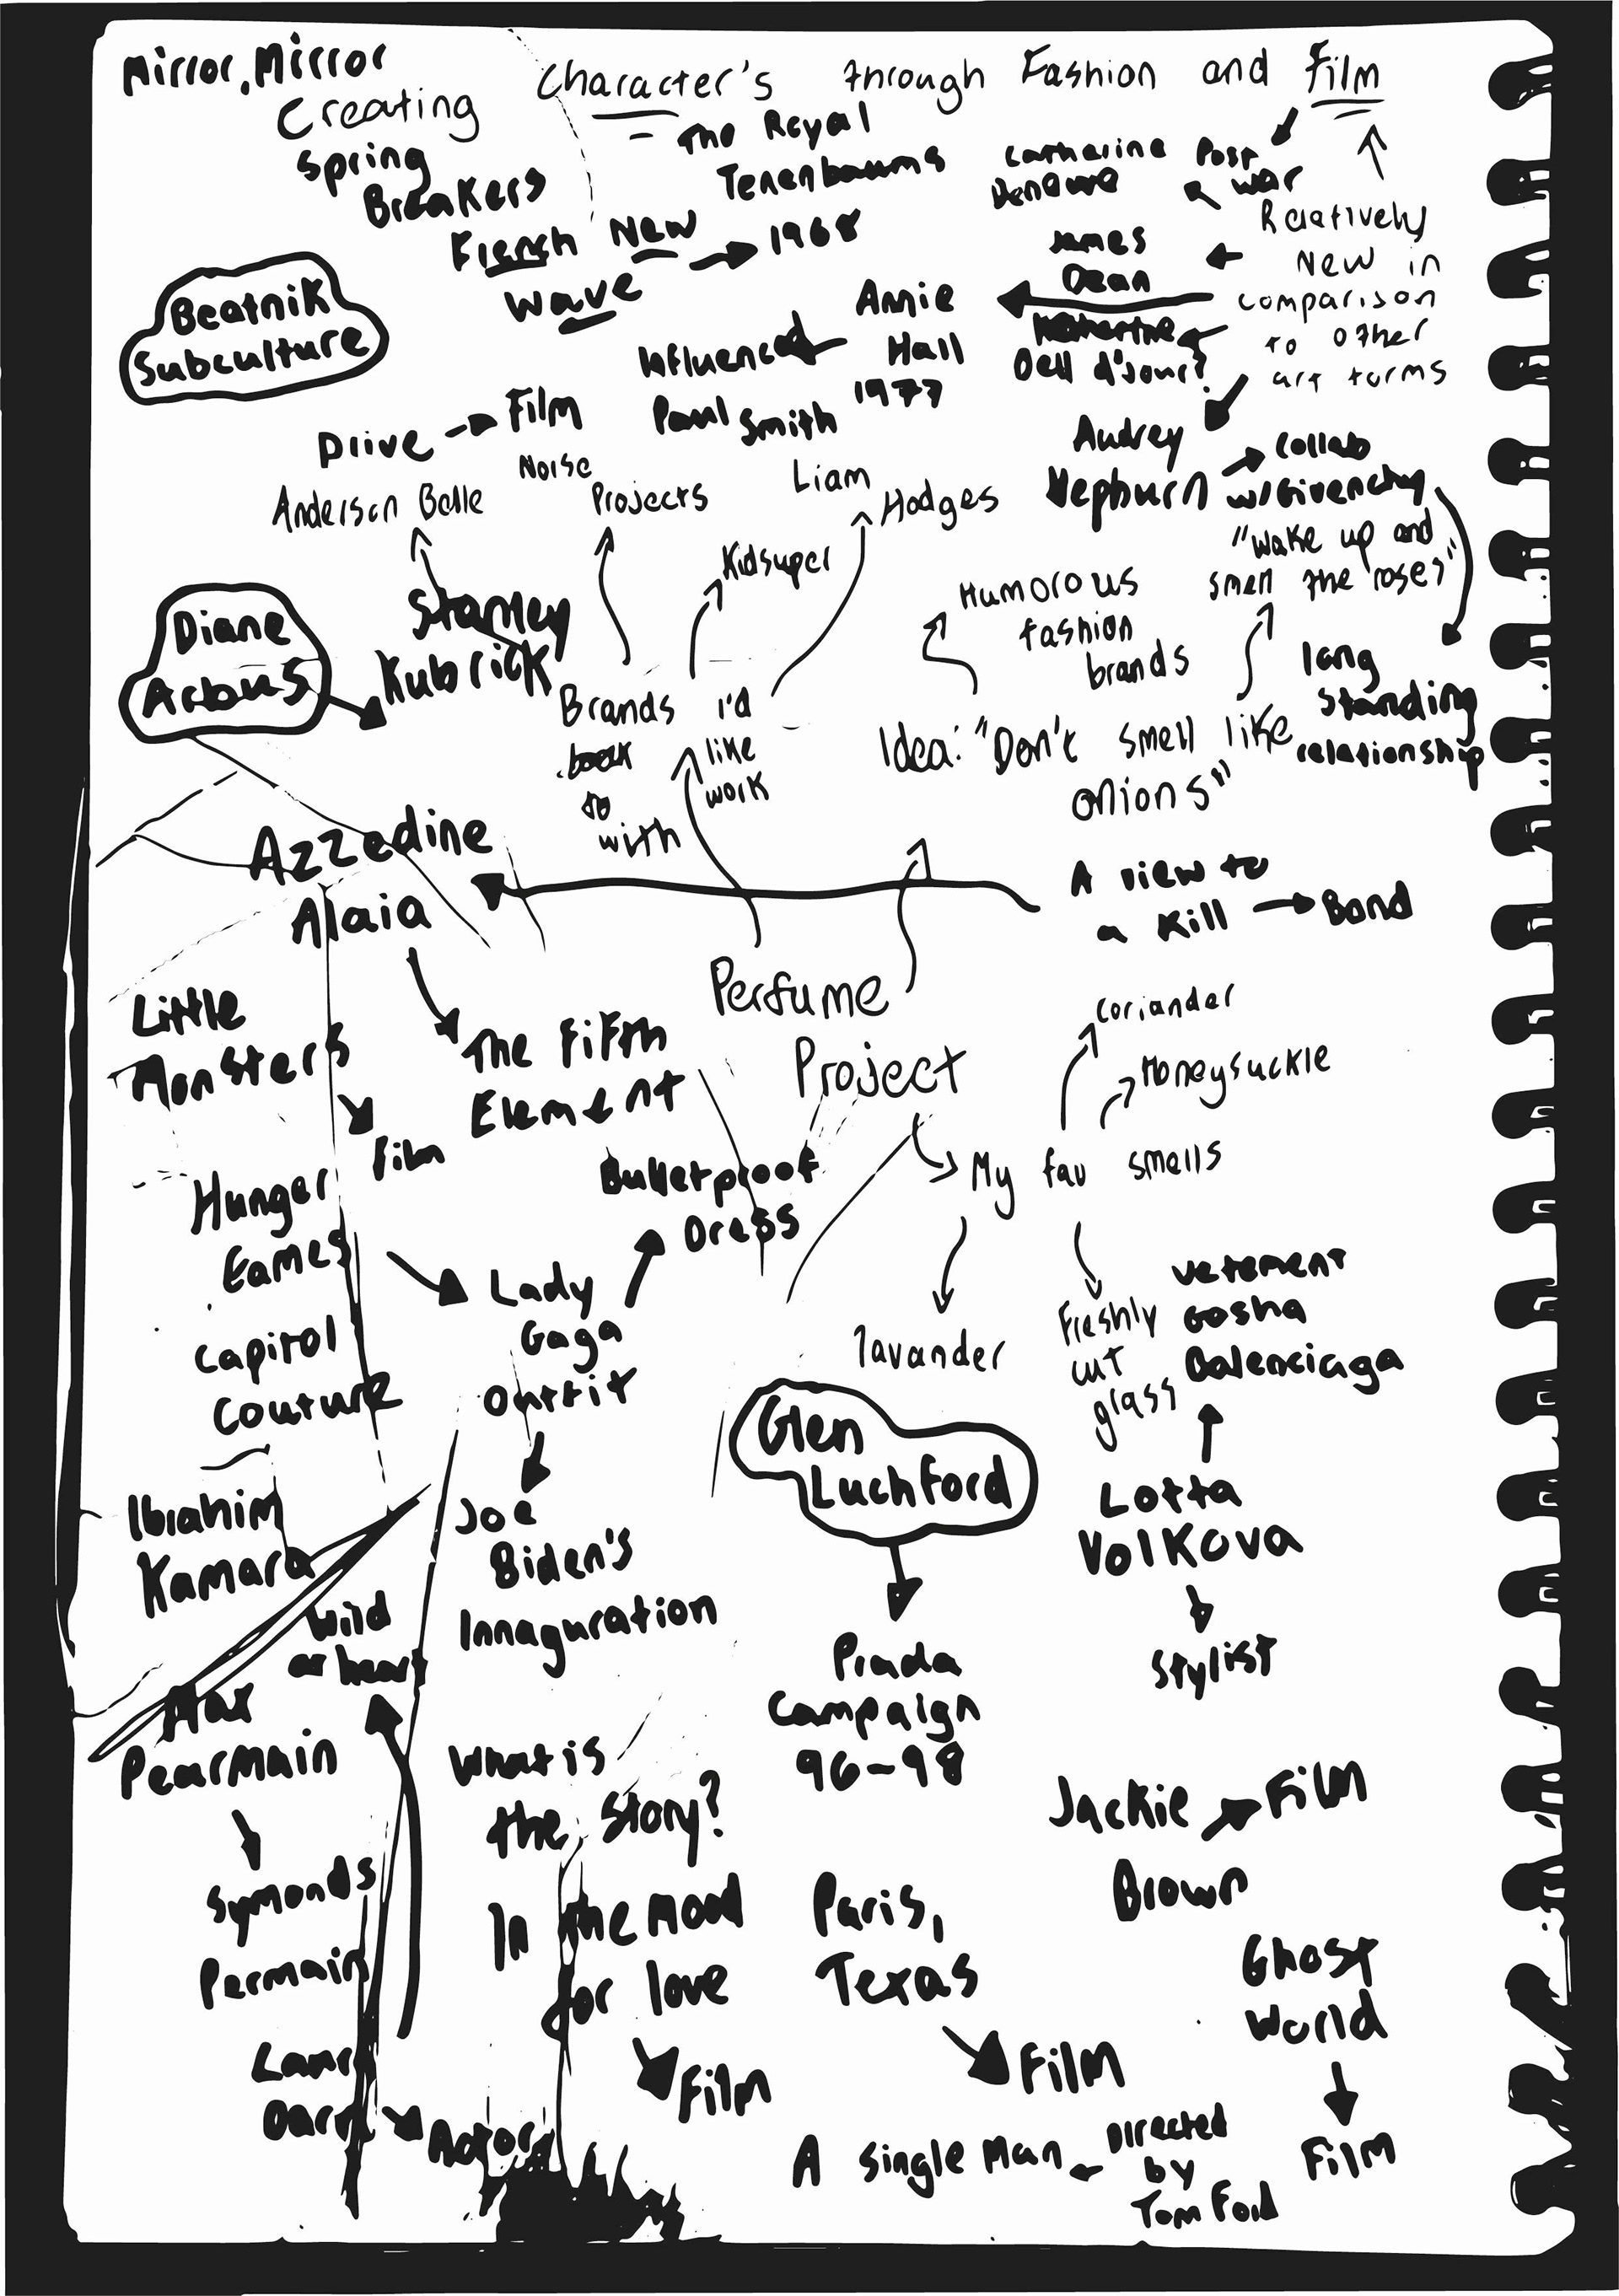 Mirror, Mirror
Creating Character's through Fashion and Film
Spring
Breakers
- The Royal
Tenenbaums
Catherine
Post
war
French New
Wave
1968
James
Dean
Relatively
New in
comparison
to other
art forms
Beatnik
Subculture
Annie
Hall
1977
Influenced
Paul Smith
d'jour?
Drive
Film
Audrey
Hepburn
collab
w/Givenchy
long
standing
relationship
Anderson Belle
Noise
Projects
Kidsuper
Liam
Hodges
Humorous
fashion
brands
"Wake up and
smell the roses"
Diane
Arbus
Stanley
Kubrick
Brands I'd
like
to work
with
Idea: "Don't smell like
onions"
Azzedine
Alaia
A view to
a Kill
Bond
Perfume
Project
Little
Monsters
Film
The Fifth
Element
coriander
Honeysuckle
My fav smells
lavander
Freshly
cut
glass
Hunger
Games
Capitol
Couture
Bulletproof
Dress
Lady
Gaga
Outfit
Joe
Biden's
Innaguration
vetement
Gosha
Balenciaga
Lotta
Volkova
Stylist
Glen
Luchford
Prada
Campaign
96-98
Ibrahim
Kamara
Wild
at heart
Max
Pearmain
Symonds
Permain
What is
the Story?
Jackie
Brown
Film
In the mood
for love
Film
Paris,
Texas
Film
Ghost
World
Film
Laura
Dern
Actor
A Single Man
Directed
by
Tom Ford